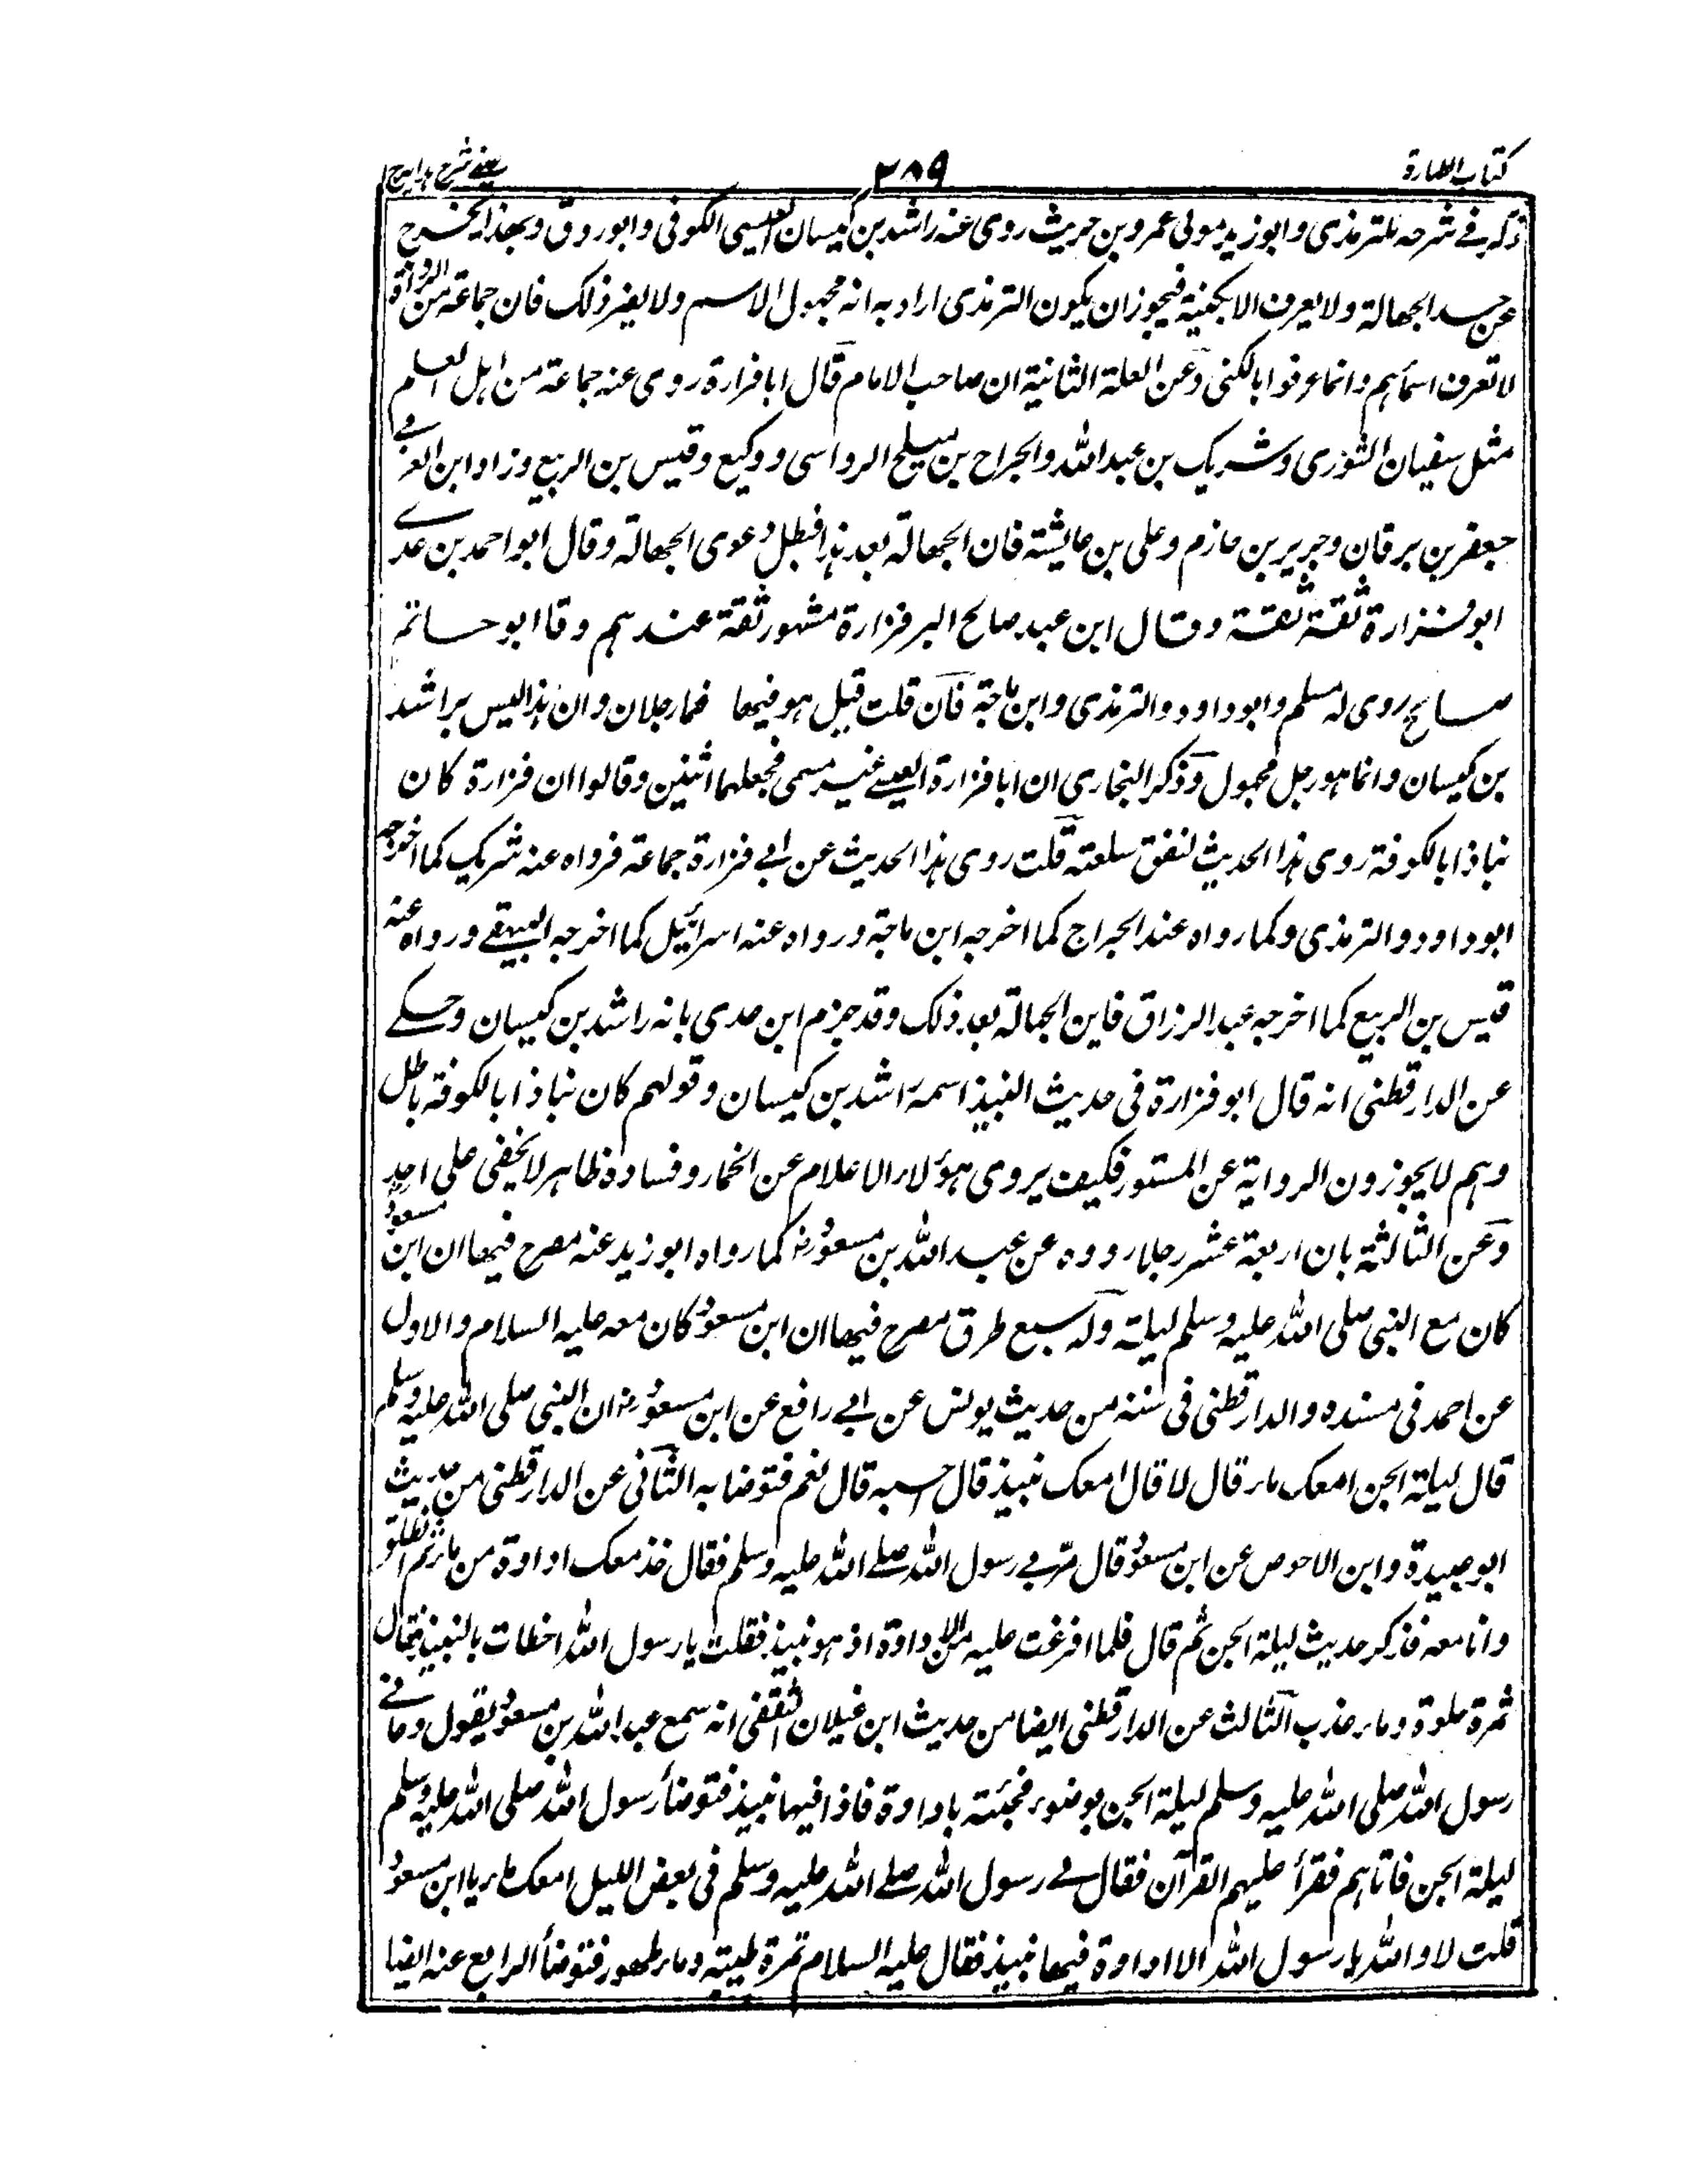 كتاب الطهارة
٢٨٩
عينى شرح هدايه ج ا
ذكره فى شرحه للترمذى وابو زيد مولى عمرو بن حريث روى عنه راشد بن كيسان العبسى الكوفى وابو روق وبهذا يخرج
عن حد الجهالة ولا يعرف الا بكنيته فيجوز ان يكون الترمذى اراد به انه مجهول الاسم ولا يضر ذلك فان جماعة من الرواة
لا تعرف اسماؤهم وانما عرفوا بالكنى وعن العلة الثانية ان صاحب الامام قال ابا فزارة روى عنه جماعة من اهل العلم
مثل سفيان الثورى وشريك بن عبد الله والجراح بن مليح الرواسى ووكيع وقيس بن الربيع وزاد ابن العربى
جعفر بن برقان وجرير بن حازم وعلى بن عايشة فان الجهالة بعد هذا فبطل دعوى الجهالة وقال ابو احمد بن عدى
ابو فزارة ثقة ثقة وقال ابن عبد صالح البر فزارة مشهور ثقة عندهم وقا ابو حاتم
صالح روى له مسلم وابو داود والترمذى وابن ماجة فان قلت قيل هو فيها فمارجلان وان هذا ليس براشد
بن كيسان وانما هو رجل مجهول وذكر البخارى ان ابا فزارة العبسى غير مسمى فجعلهما اثنين وقالوا ان فزارة كان
نباذا بالكوفة روى هذا الحديث لنفق سلعته قلت روى هذا الحديث عن ابى فزارة جماعة فرواه عنه شريك كما اخرجه
ابو داود والترمذى وكما رواه عنه الجراح كما اخرجه ابن ماجة ورواه عنه اسرائيل كما اخرجه البيهقى ورواه عنه
قيس بن الربيع كما اخرجه عبد الرزاق فاين الجهالة بعد ذلك وقد جزم ابن عدى بانه راشد بن كيسان وحكى
عن الدارقطنى انه قال ابو فزارة فى حديث النبيذ اسمه راشد بن كيسان وقولهم كان نباذا بالكوفة باطل
وهم لا يجوزون الرواية عن المستور فكيف يروى هؤلاء الاعلام عن الخمار وفساده ظاهر لا يخفى على احد
وعن الثالثة بان اربعة عشر رجلا رووه عن عبد الله بن مسعودؓ كما رواه ابو زيد عنه مصرح فيها ان ابن مسعودؓ
كان مع النبى صلى الله عليه وسلم ليلة وله سبع طرق مصرح فيها ان ابن مسعودؓ كان معه عليه السلام والاول
عن احمد فى مسنده والدارقطنى فى سننه من حديث يونس عن ابى رافع عن ابن مسعودؓ ان النبى صلى الله عليه وسلم
قال ليلة الجن امعك ماء قال لا قال امعك نبيذ قال احسبه قال نعم فتوضا به الثانى عن الدارقطنى من حديث
ابو عبيدة وابن الاحوص عن ابن مسعودؓ قال مر بى رسول الله صلى الله عليه وسلم فقال خذ معك اداوة من ماء ثم انطلق
وانا معه فذكر حديث ليلة الجن ثم قال فلما افرغت عليه من الاداوة اذ هو نبيذ فقلت يا رسول الله اخطات بالنبيذ فقال
ثمرة حلوة وماء عذب الثالث عن الدارقطنى ايضا من حديث ابن غيلان الثقفى انه سمع عبد الله بن مسعودؓ يقول دعانى
رسول الله صلى الله عليه وسلم ليلة الجن بوضوء فجئته باداوة فاذا فيها نبيذ فتوضأ رسول الله صلى الله عليه وسلم
ليلة الجن فاتاهم فقرأ عليهم القرآن فقال لى رسول الله صلى الله عليه وسلم فى بعض الليل امعك ماء يا ابن مسعودؓ
قلت لا والله يا رسول الله الا اداوة فيها نبيذ فقال عليه السلام تمرة طيبة وماء طهور فتوضأ الرابع عنه ايضا